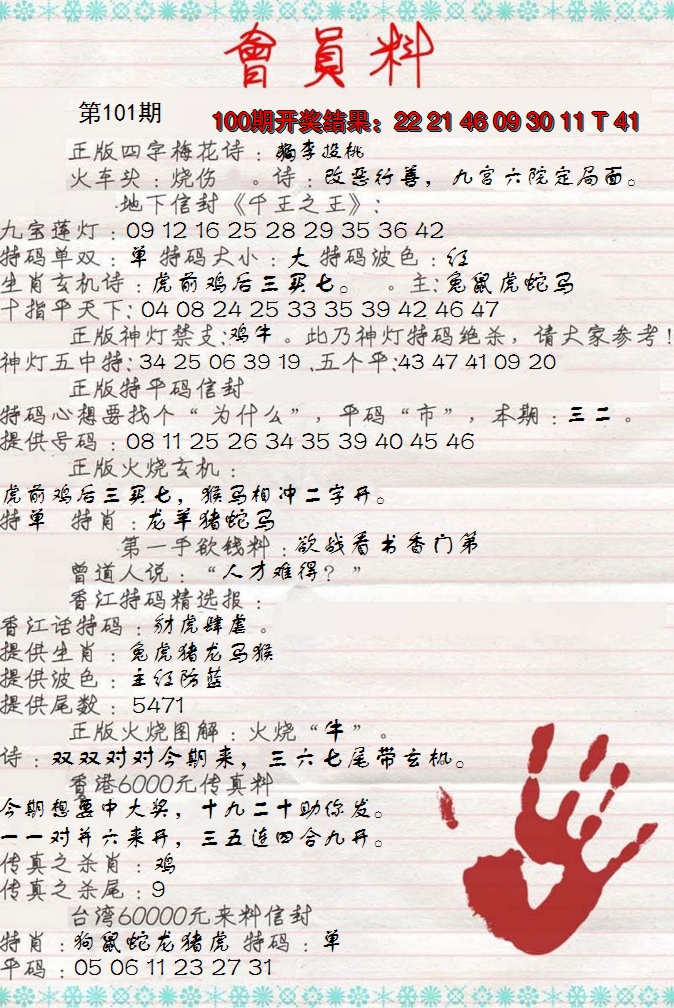 會員料
第101期
100期开奖结果：22 21 46 09 30 11 T 41
正版四字梅花诗：李投桃
火车头：烧伤 。诗：改恶行善，九宫六院定局面。
地下信封《千王之王》：
九宝莲灯：09 12 16 25 28 29 35 36 42
特码单双：单 特码大小：大 特码波色：红
生肖玄机诗：虎前鸡后三买七。 。主：兔鼠虎蛇马
十指平天下：04 08 24 25 33 35 39 42 46 47
正版神灯禁支：鸡牛。此乃神灯特码绝杀，请大家参考！
神灯五中特：34 25 06 39 19 .五个平：43 47 41 09 20
正版特平码信封
特码心想要找个“为什么”，平码“市”，本期：三二。
提供号码：08 11 25 26 34 35 39 40 45 46
正版火烧玄机：
虎前鸡后三买七，猴马相冲二字开。
特单 特肖：龙羊猪蛇马
第一手欲钱料：欲战看书香门第
曾道人说：“人才难得？”
香江特码精选报：
香江话特码：豺虎肆虐。
提供生肖：兔虎猪龙马猴
提供波色：主红防蓝
提供尾数：5471
正版火烧图解：火烧“牛”。
诗：双双对对今期来，三六七尾带玄机。
香港6000元传真料
今期想要中大奖，十九二十助你发。
一一对并六来开，三五连四合九开。
传真之杀肖：鸡
传真之杀尾：9
台湾60000元来料信封
特肖：狗鼠蛇龙猪虎 特码：单
平码：05 06 11 23 27 31